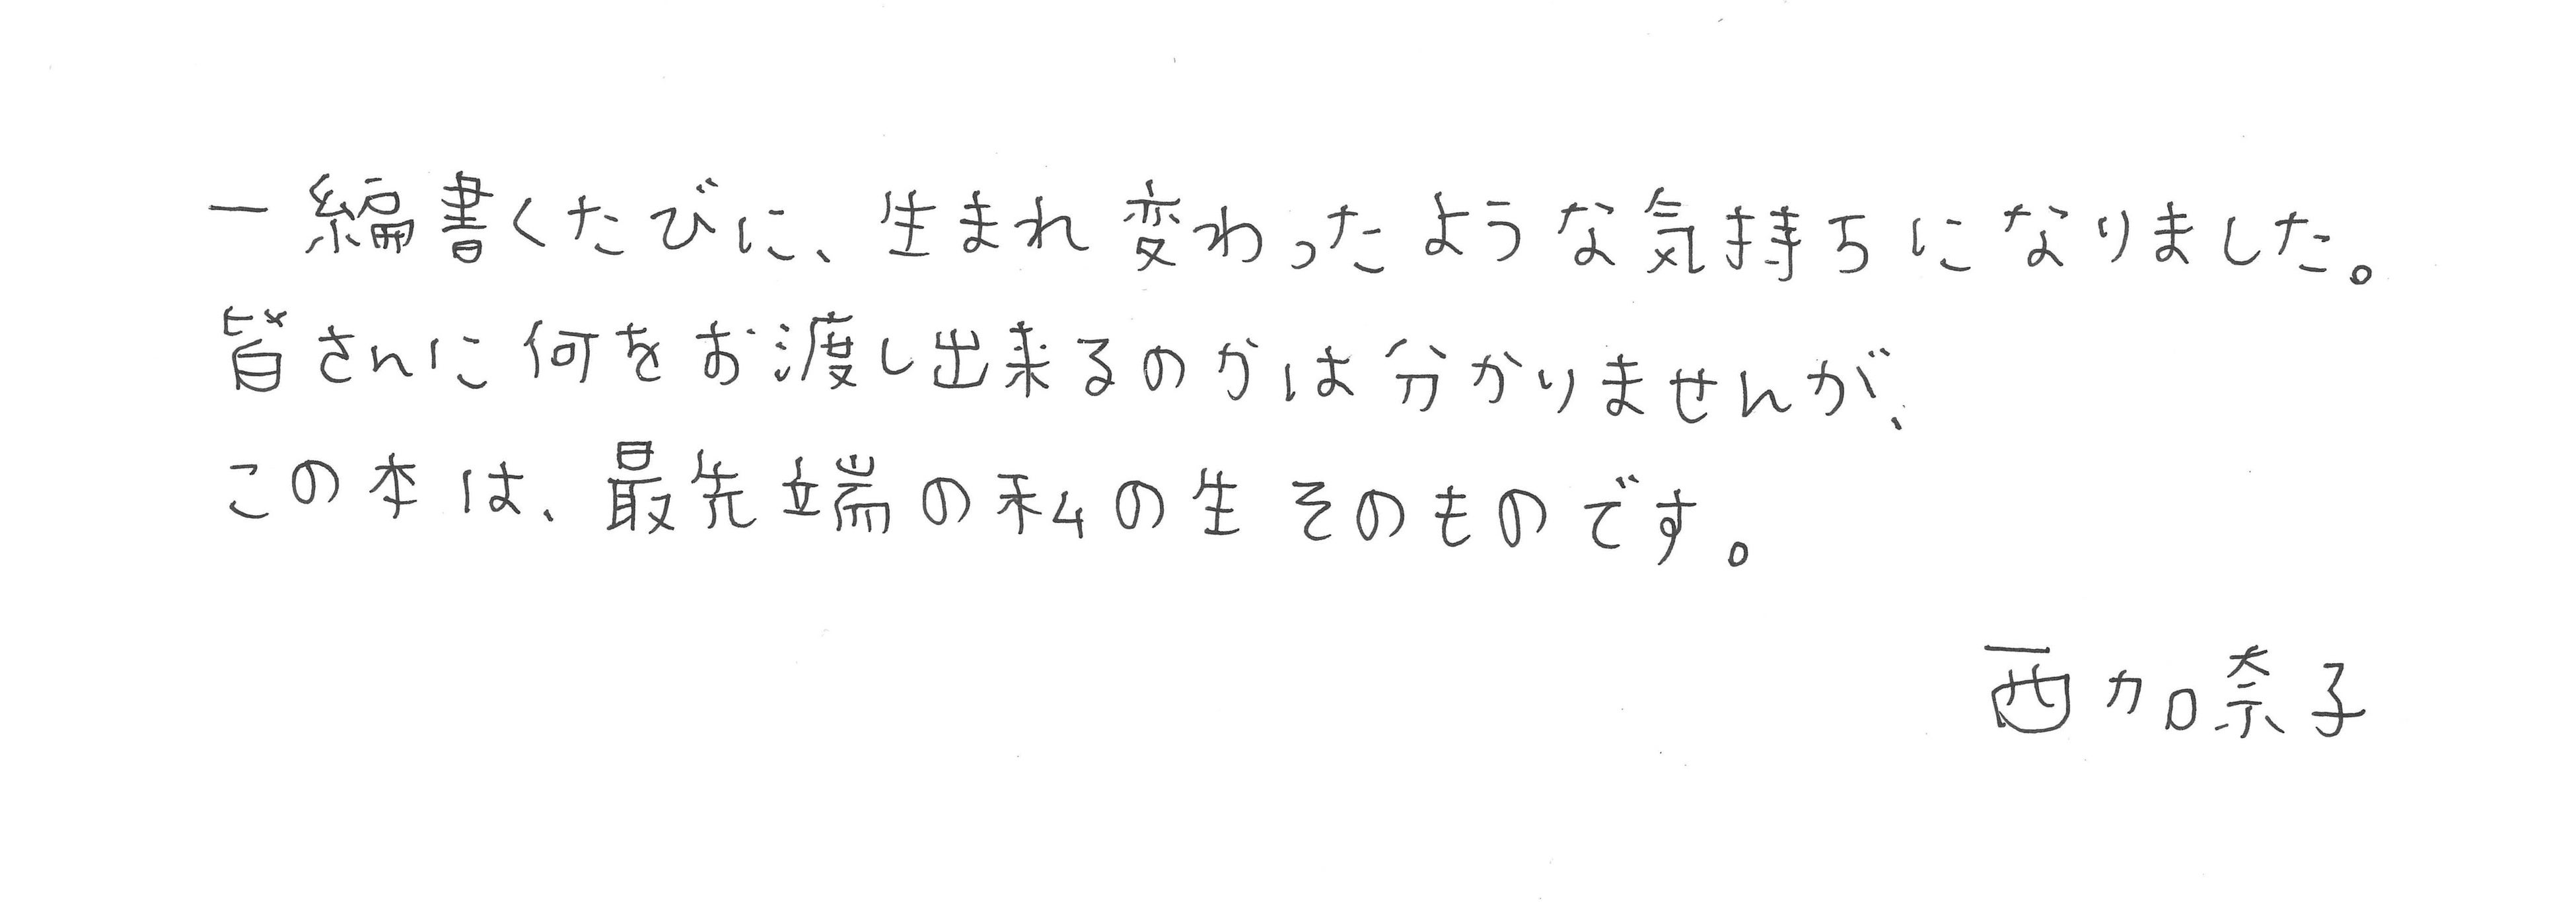 一編書くたびに、生まれ変わったような気持ちになりました。
皆さんに何をお渡し出来るのかは分かりませんが、
この本は、最先端の私の生そのものです。
西加奈子